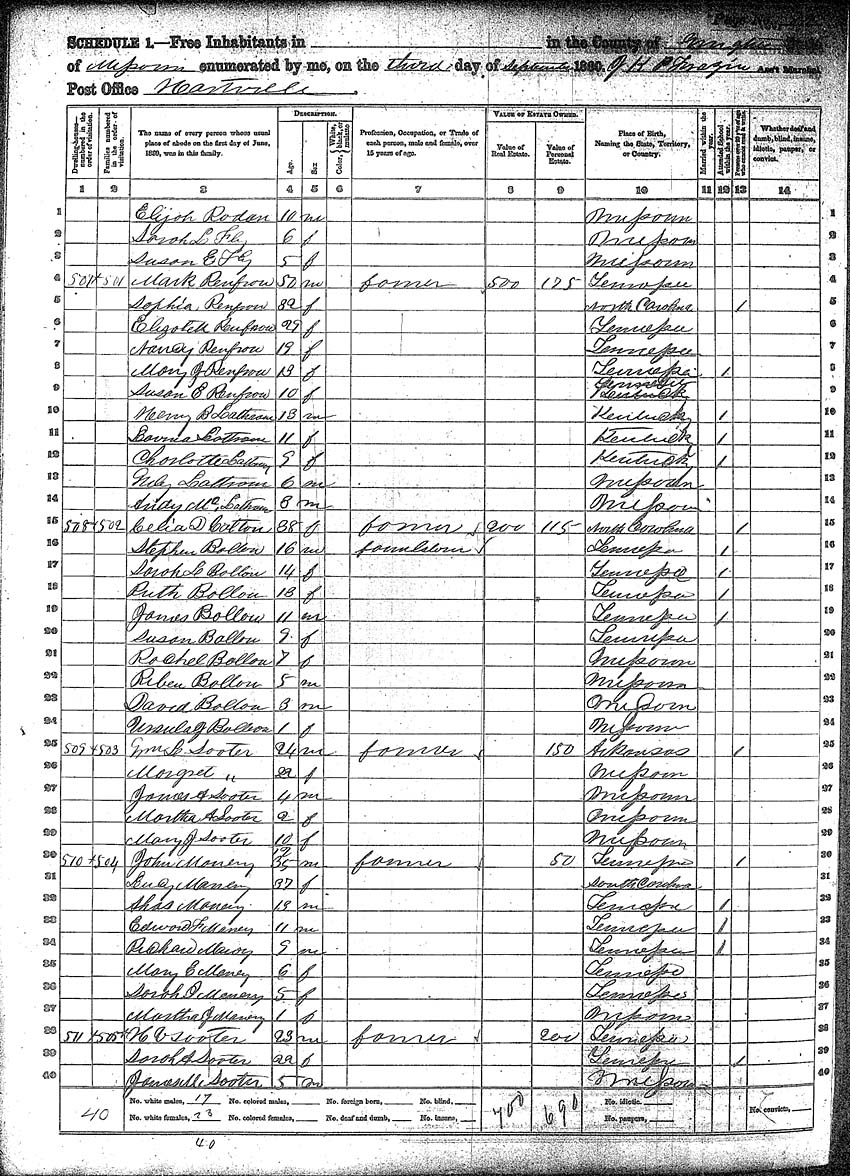 SCHEDULE 1.—Free Inhabitants in in the County of
of Missouri enumerated by me, on the third day of September 1860. Ass't Marshal
Post Office Hartville
DESCRIPTION. VALUE OF ESTATE OWNED.
Dwelling-houses—numbered in the order of visitation. Families numbered in the order of visitation. The name of every person whose usual place of abode on the first day of June, 1860, was in this family. Age. Sex. Color, White, black, or mulatto. Profession, Occupation, or Trade of each person, male and female, over 15 years of age. Value of Real Estate. Value of Personal Estate. Place of Birth, Naming the State, Territory, or Country. Married within the year. Attended School within the year. Persons over 20 y'rs of age who cannot read & write. Whether deaf and dumb, blind, insane, idiotic, pauper, or convict.
1 2 3 4 5 6 7 8 9 10 11 12 13 14
1 Elijah Rodan 10 m Missouri 1
2 Sarah L 6 f Missouri 2
3 Susan E 5 f Missouri 3
4 507 501 Mark Renfrow 50 m farmer 500 175 Tennessee 4
5 Sophia Renfrow 82 f North Carolina 1 5
6 Elizabeth Renfrow 29 f Tennessee 6
7 Nancy Renfrow 19 f Tennessee 7
8 Mary J Renfrow 13 f Tennessee 1 8
9 Susan E Renfrow 10 f Kentucky 9
10 Henry B Lathrom 13 m Kentucky 1 10
11 Lovina Lathrom 11 f Kentucky 1 11
12 Charlotte Lathrom 9 f Kentucky 1 12
13 Lathrom 6 m Missouri 13
14 Andy Mc Lathrom 3 m Missouri 14
15 508 502 Celia D Cotton 38 f farmer 200 115 North Carolina 1 15
16 Stephen Ballou 16 m Tennessee 1 16
17 Sarah L Ballou 14 f Tennessee 1 17
18 Ruth Ballou 13 f Tennessee 1 18
19 James Ballou 11 m Tennessee 1 19
20 Susan Ballou 9 f Tennessee 20
21 Rachel Ballou 7 f Missouri 21
22 Riben Ballou 5 m Missouri 22
23 David Ballou 3 m Missouri 23
24 Ursula J Ballou 1 f Missouri 24
25 509 503 Wm L Sooter 24 m farmer 150 Arkansas 1 25
26 Margret " 22 f Missouri 26
27 James A Sooter 4 m Missouri 27
28 Martha A Sooter 2 f Missouri 28
29 Mary J Sooter f Missouri 29
30 510 504 John Manery 35 m farmer 50 Tennessee 1 30
31 Lucy Manery 37 f South Carolina 31
32 Manery 13 m Tennessee 1 32
33 Edward F Manery 11 m Tennessee 1 33
34 Richard Manery 9 m Tennessee 1 34
35 Mary E Manery 6 f Tennessee 35
36 Sarah Manery 5 f Tennessee 36
37 Martha J Manery 1 f Missouri 37
38 511 505 H V Sooter 23 m farmer 200 Tennessee 38
39 Sarah A Sooter 22 f Tennessee 1 39
40 James Sooter 5 m Missouri 40
40 No. white males, 17 No. colored males, No. foreign born, No. blind, 700 690 No. idiotic, No. convicts,
No. white females, 23 No. colored females, No. deaf and dumb, No. insane, No. paupers,
40